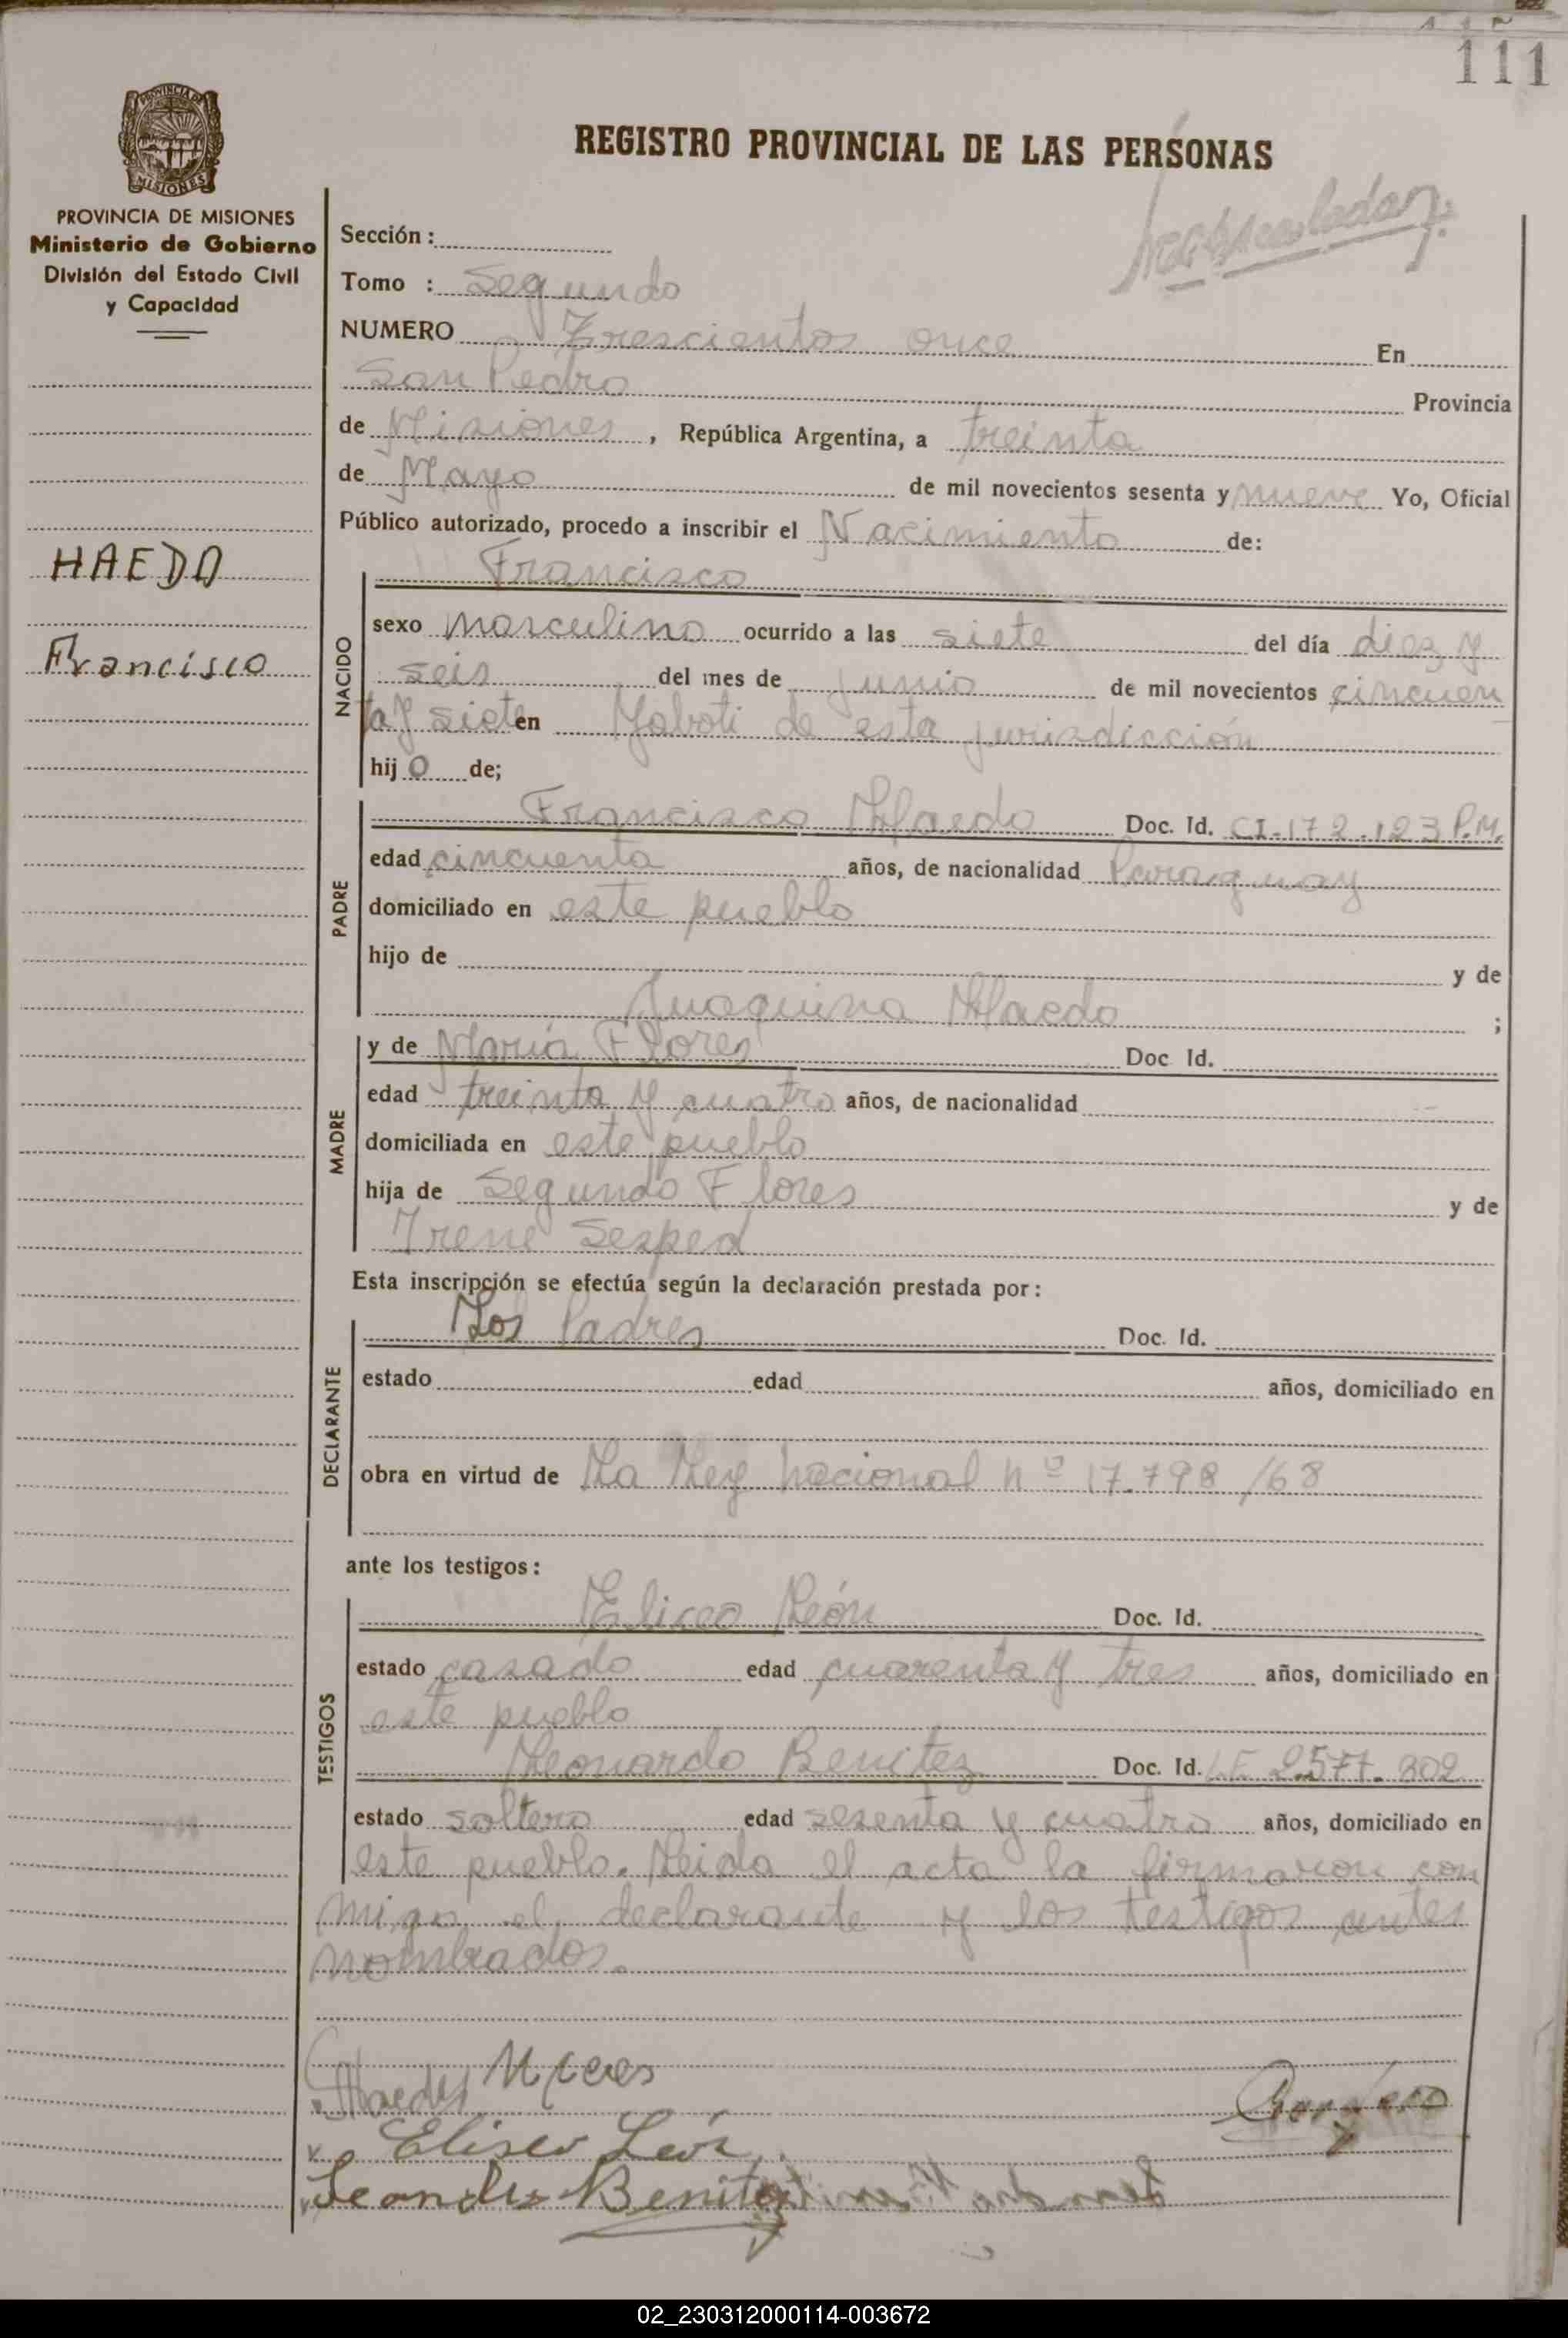 111
REGISTRO PROVINCIAL DE LAS PERSONAS
PROVINCIA DE MISIONES
Ministerio de Gobierno
División del Estado Civil
y Capacidad
HAEDO
Francisco
Sección :
Tomo : Segundo
NUMERO Trescientos once En
San Pedro Provincia
de Misiones , República Argentina, a treinta
de Mayo de mil novecientos sesenta y nueve Yo, Oficial
Público autorizado, procedo a inscribir el Nacimiento de:
Francisco
NACIDO
sexo masculino ocurrido a las siete del día diez y
seis del mes de junio de mil novecientos cincuen
ta y siete en Yaboti de esta jurisdicción
hij o de;
PADRE
Francisco Haedo Doc. Id. CI-172.123 P.M.
edad cincuenta años, de nacionalidad Paraguay
domiciliado en este pueblo
hijo de y de
Juaquina Haedo ;
MADRE
y de María Flores Doc Id.
edad treinta y cuatro años, de nacionalidad
domiciliada en este pueblo
hija de Segundo Flores y de
Irene Sesped
Esta inscripción se efectúa según la declaración prestada por :
DECLARANTE
Los Padres Doc. Id.
estado edad años, domiciliado en
obra en virtud de La Ley Nacional nº 17.798 /68
ante los testigos :
TESTIGOS
Eliseo León Doc. Id.
estado casado edad cuarenta y tres años, domiciliado en
este pueblo
Leonardo Benitez Doc. Id. LE 2.577.802
estado soltero edad sesenta y cuatro años, domiciliado en
este pueblo. Leida el acta la firmaron con
migo el declarante y los testigos antes
nombrados.
Haedo
Eliseo León
Leandro Benitez
02_230312000114-003672